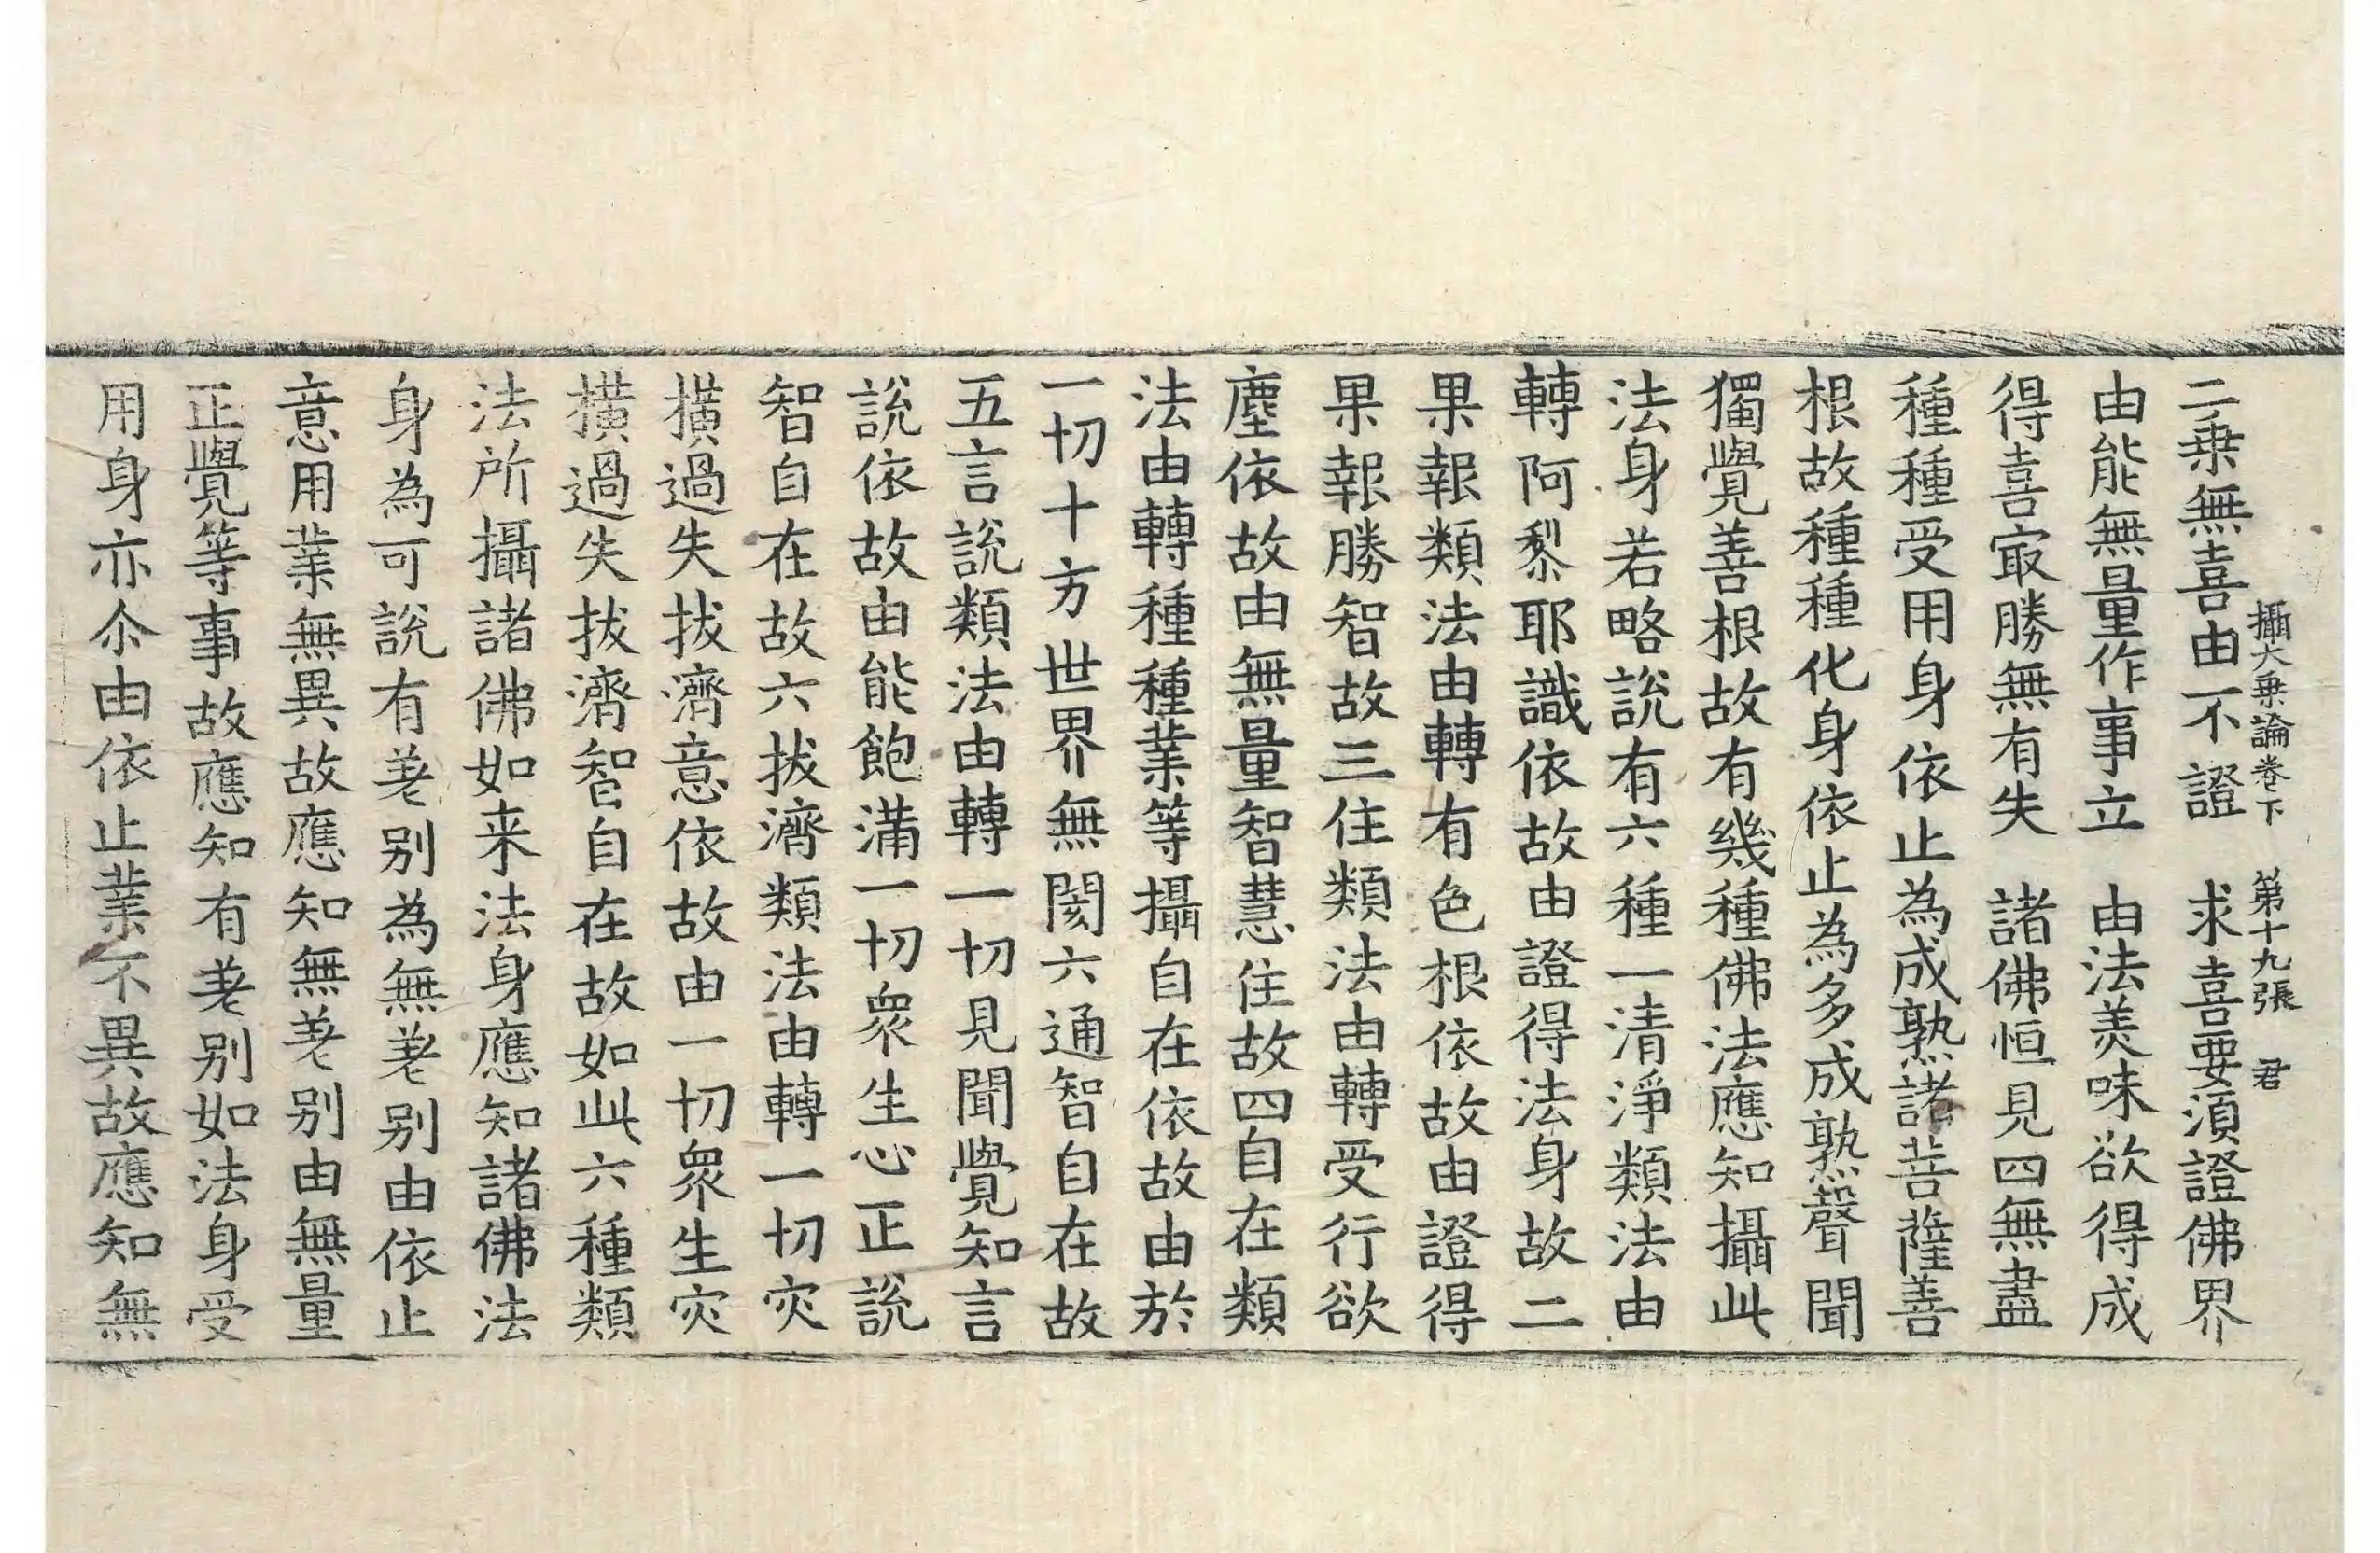 攝大乗論卷下　第十九張　君
二乗無喜由不證　求喜要須證佛界
由能無量作事立　由法羙味欲得成
得喜㝡勝無有失　諸佛恒見四無盡
種種受用身依止為成熟諸菩薩善
根故種種化身依止為多成熟聲聞
獨覺善根故有幾種佛法應知攝此
法身若略說有六種一清淨類法由
轉阿黎耶識依故由證得法身故二
果報類法由轉有色根依故由證得
果報勝智故三住類法由轉受行欲
塵依故由無量智慧住故四自在類
法由轉種種業等攝自在依故由於
一切十方世界無閡六通智自在故
五言說類法由轉一切見聞覺知言
說依故由能飽滿一切衆生心正說
智自在故六拔濟類法由轉一切灾
撗過失拔濟意依故由一切衆生灾
撗過失拔濟智自在故如此六種類
法所攝諸佛如来法身應知諸佛法
身為可說有差别為無差别由依止
意用業無異故應知無差别由無量
正覺等事故應知有差别如法身受
用身亦尒由依止業不異故應知無